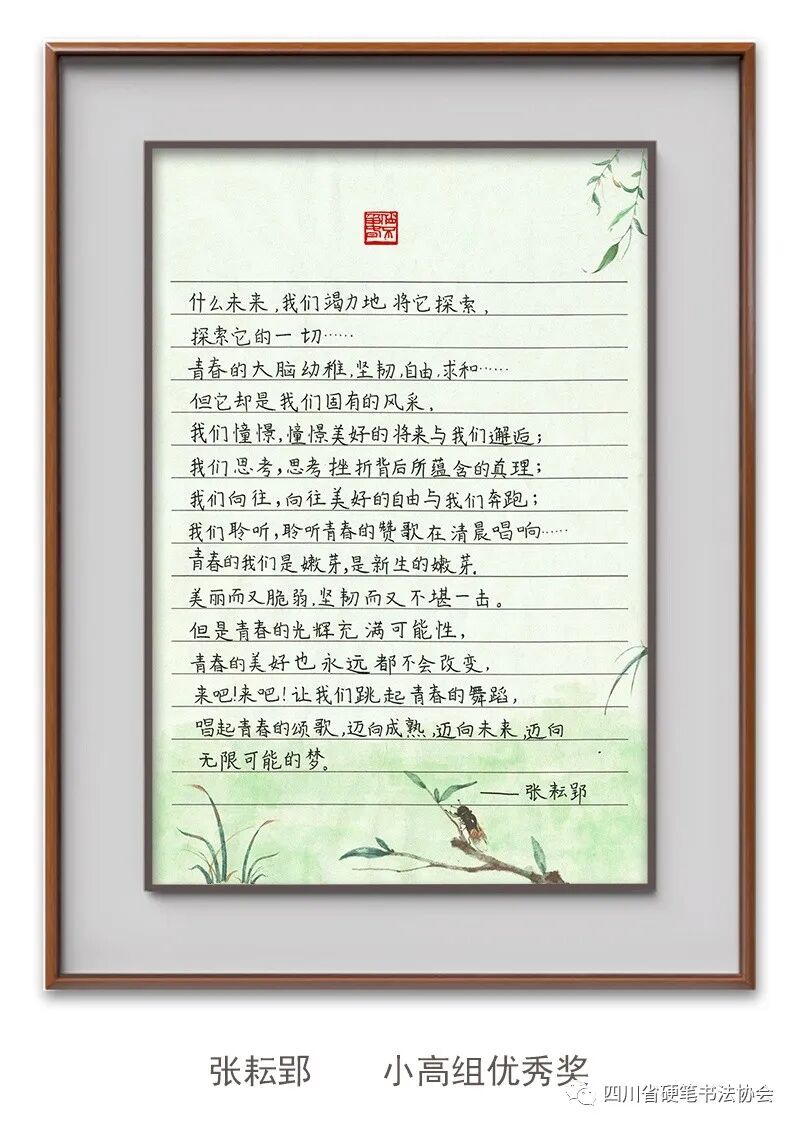 什么未来,我们竭力地将它探索,
探索它的一切……
青春的大脑幼稚,坚韧,自由,求和……
但它却是我们固有的风采,
我们憧憬,憧憬美好的将来与我们邂逅;
我们思考,思考挫折背后所蕴含的真理;
我们向往,向往美好的自由与我们奔跑;
我们聆听,聆听青春的赞歌在清晨唱响……
青春的我们是嫩芽,是新生的嫩芽.
美丽而又脆弱,坚韧而又不堪一击。
但是青春的光辉充满可能性,
青春的美好也永远都不会改变,
来吧!来吧!让我们跳起青春的舞蹈,
唱起青春的颂歌,迈向成熟,迈向未来,迈向
无限可能的梦。
——张耘郢
张耘郢 小高组优秀奖
四川省硬笔书法协会